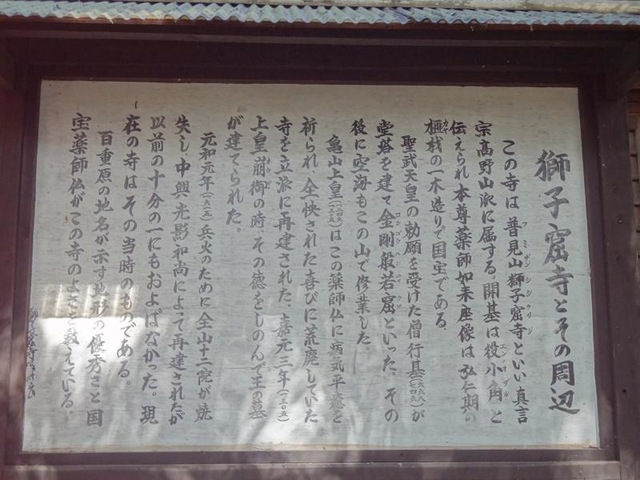 獅子窟寺とその周辺
この寺は普見山獅子窟寺といい真言
宗高野山派に属する。開基は役小角と
伝えられ本尊薬師如来座像は弘仁期の
榧材の一木造りで国宝である。
聖武天皇の勅願を受けた僧行基が
堂塔を建て金剛般若窟といった。その
後に空海もこの山で修業した
亀山上皇はこの薬師仏に病気平癒を
祈られ、全快された喜びに荒廃していた
寺を立派に再建された。嘉元三年(一三〇五)
上皇崩御の時、その徳をしのんで王の墓
が建てられた。
元和元年(一六一五)兵火のために全山十二院が焼
失し中興光影和尚によって再建されたが
以前の十分の一にもおよばなかった。現
在の寺はその当時のものである。
百重原の地名が示す地形の優秀さと国
宝薬師仏がこの寺のよさを教えている。